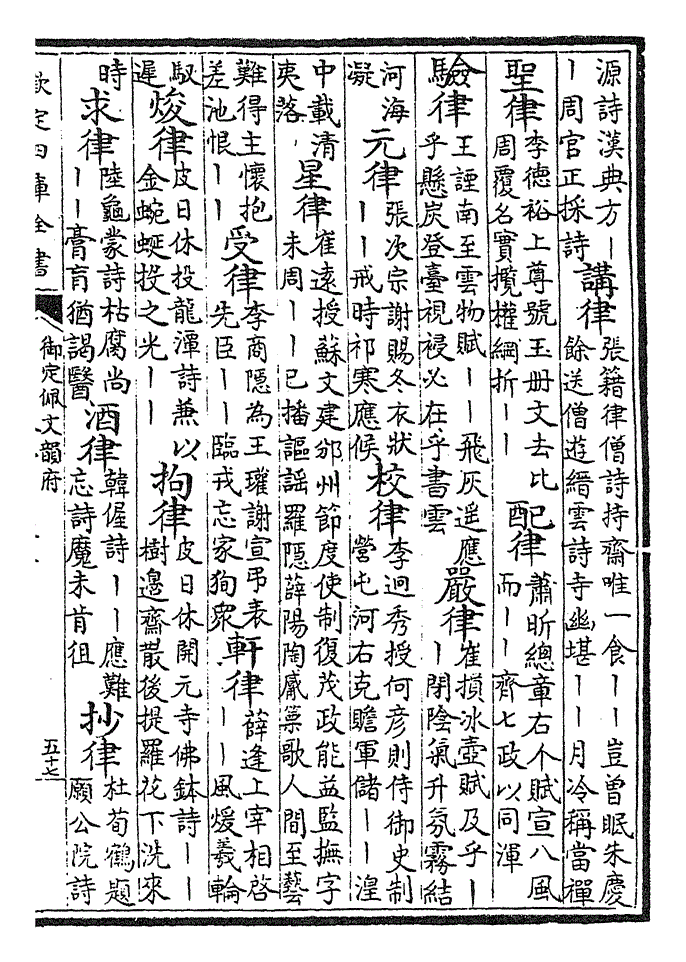 源詩漢典方｜
｜周官正採詩
講律
張籍律僧詩持齋唯一食｜｜豈曾眠朱慶
餘送僧遊縉雲詩寺幽堪｜｜月冷稱當禪
聖律
李德裕上尊號玉册文去比
周覆名實攬權綱折｜｜
配律
蕭昕總章右个賦宣八風
而｜｜｜齊七政以同渾
驗律
王諲南至雲物賦｜｜飛灰遥應
乎懸炭登臺視祲必在乎書雲
嚴律
崔損冰壺賦及乎｜
｜閉陰氣升氛霧結
河海
凝
元律
張次宗謝賜冬衣狀
｜｜戒時祁寒應候
校律
李迥秀授何彦則侍御史制
營屯河右克贍軍儲｜｜湟
中載清
夷落
星律
崔遠授蘇文建邠州節度使制復茂政能益監撫字
未周｜｜已播謳謡羅隱薛陽陶觱篥歌人間至藝
難得主懷抱
差池恨｜｜
受律
李商隱為王瓘謝宣弔表
先臣｜｜臨戎忘家狥衆
軒律
薛逢上宰相啓
｜｜風煖羲輪
馭
遲
焌律
皮日休投龍潭詩兼以
金蜿蜒投之光｜｜
拘律
皮日休開元寺佛鉢詩｜｜
樹邊齋散後提羅花下洗來
時
求律
陸龜蒙詩枯腐尚
｜｜膏肓猶謁醫
酒律
韓偓詩｜｜應難
忘詩魔未肯徂
抄律
杜荀鶴題
願公院詩
欽定四庫全書
御定佩文韻府
五十七